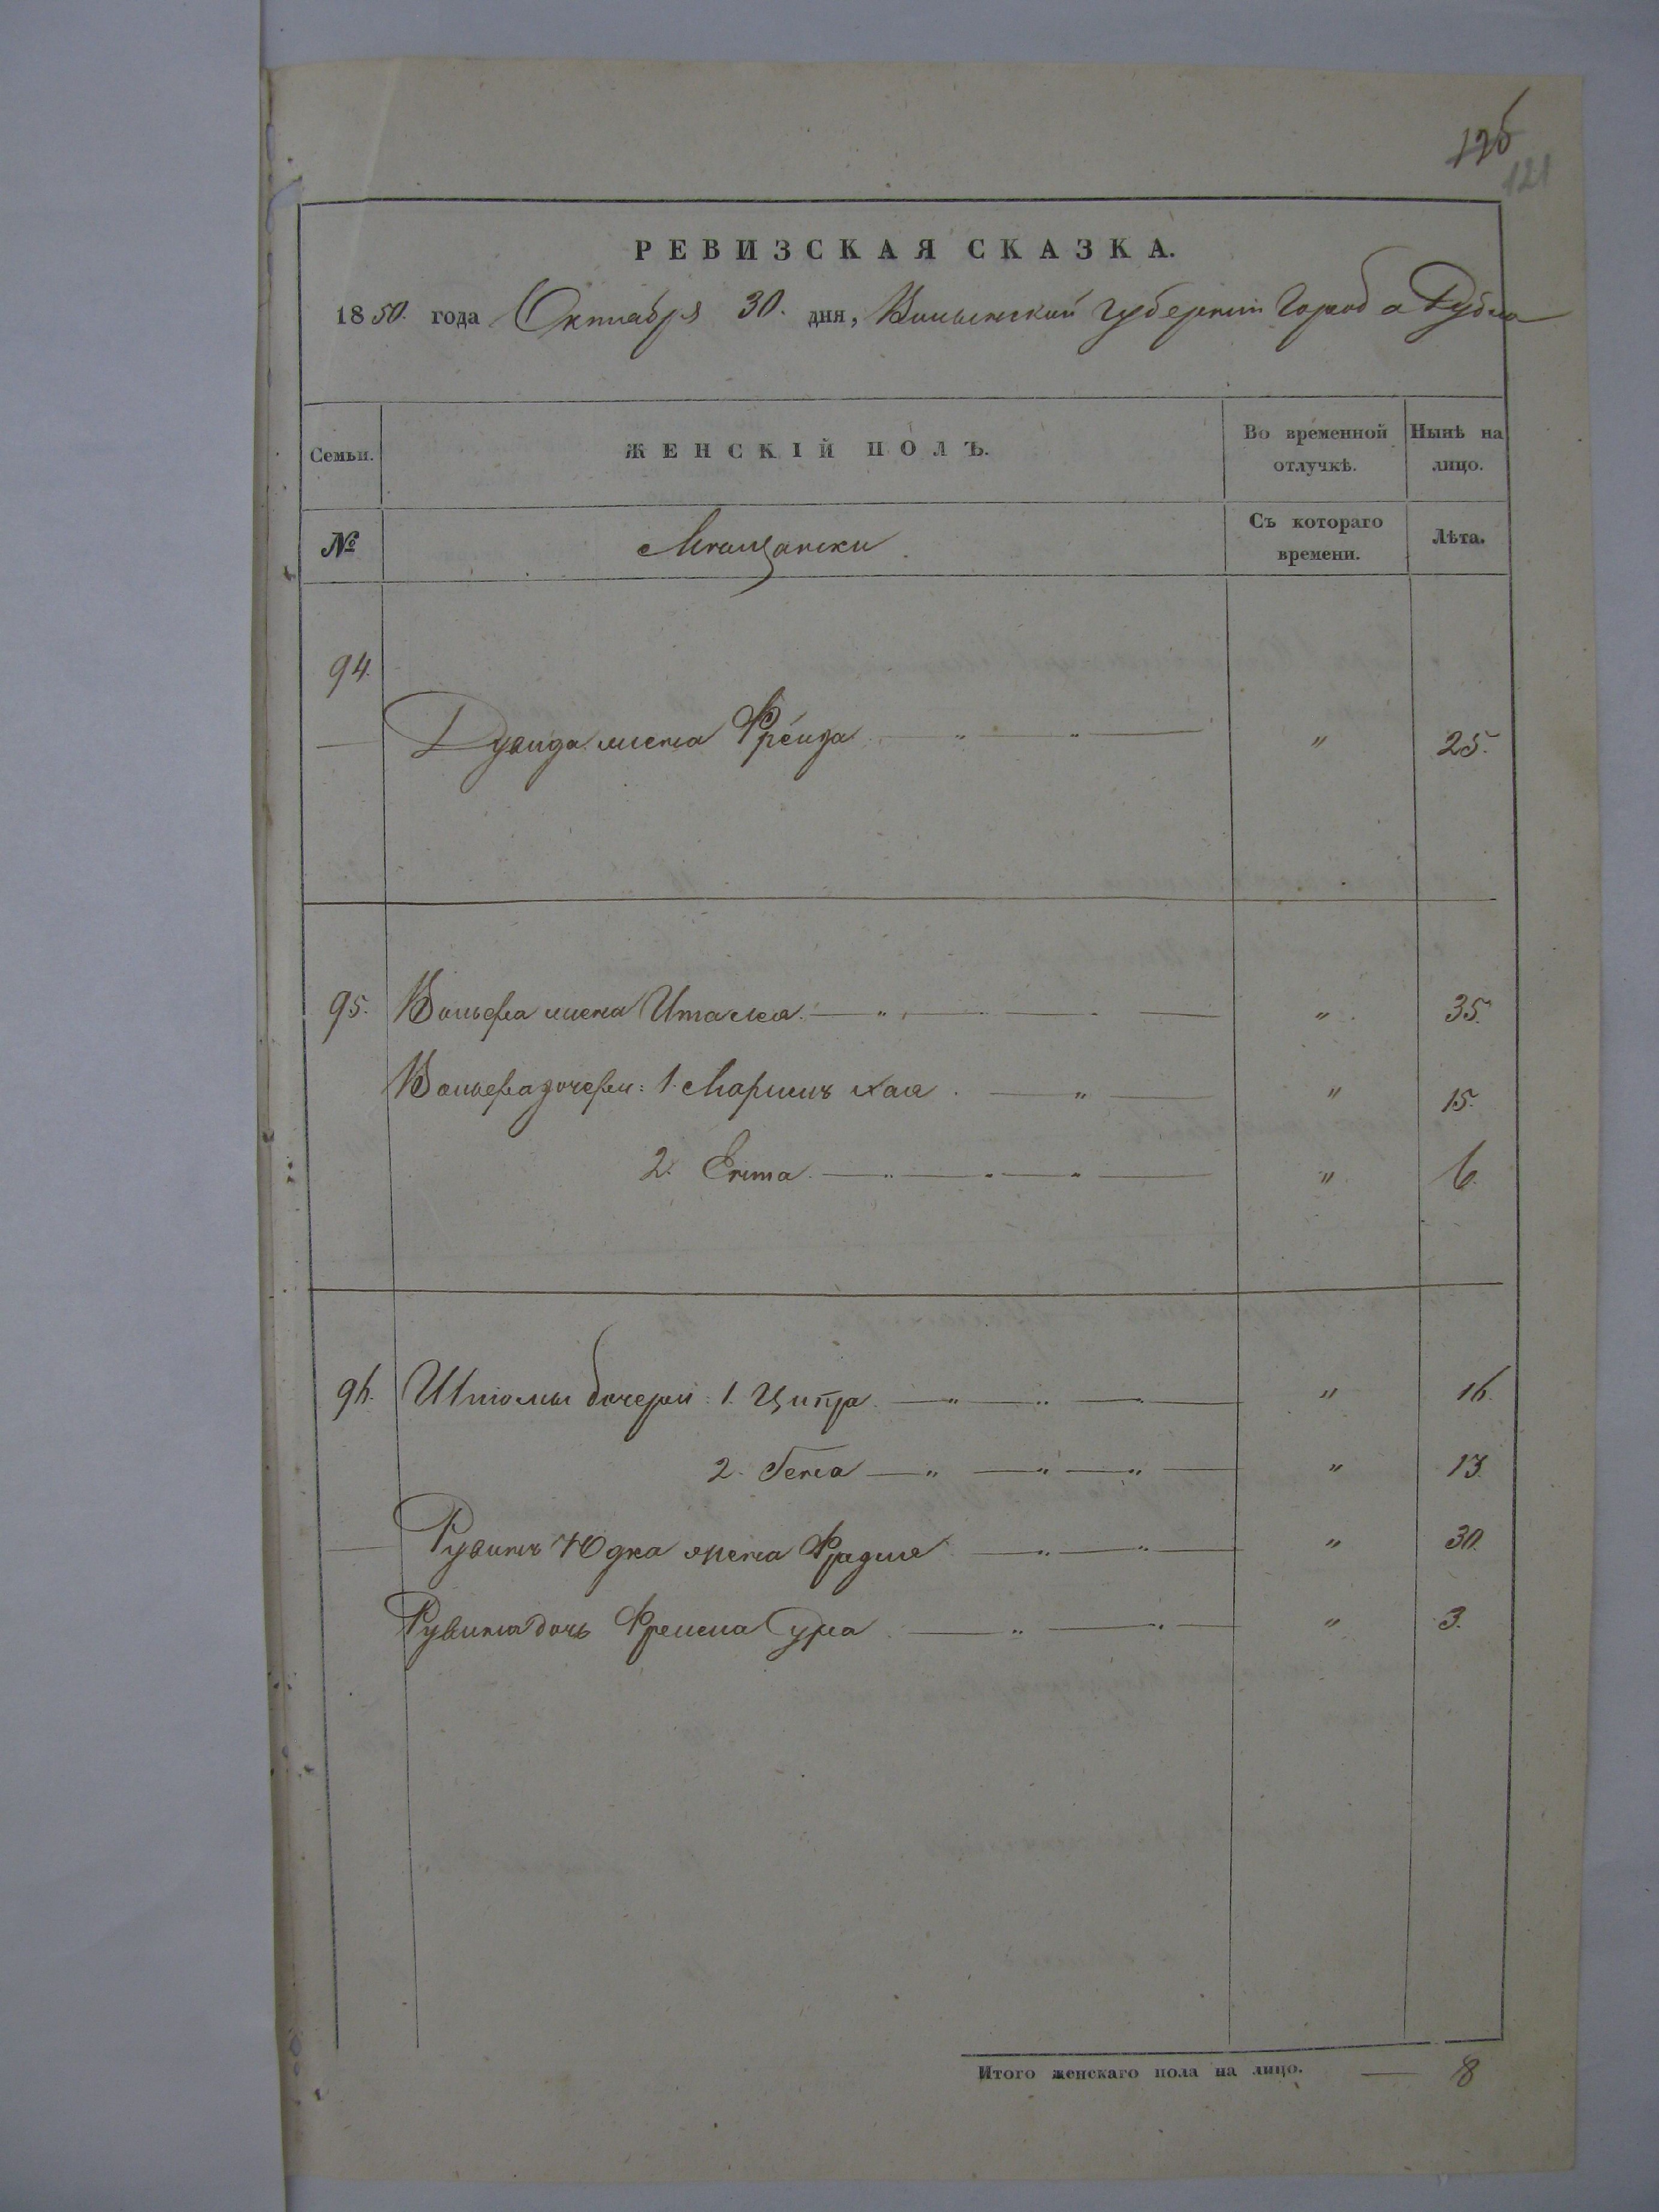 126
121
РЕВИЗСКАЯ СКАЗКА.
1850. года Октября 30. дня, Волынской губернии Города Дубна
Семьи.
ЖЕНСКІЙ ПОЛЪ.
Во временной отлучкѣ.
Нынѣ на лицо.
№
Мѣщански
Съ котораго времени.
Лѣта.
94.
Дувида жена Фрейда — " — " — " 25.
95. Вольфа жена Италя — " — " — " 35.
Вольфа дочери: 1. Маримъ Хая — " — " 15.
2. Ента — " — " — " — " 6.
96. Шломы дочери: 1. Ципра — " — " — " — " 16.
2. Геня — " — " — " — " 13.
Рувинъ Юдка жена Фрадля — " — " — " 30.
Рувина дочь Фрейма Сура — " — " — " 3.
Итого женскаго пола на лицо. — 8